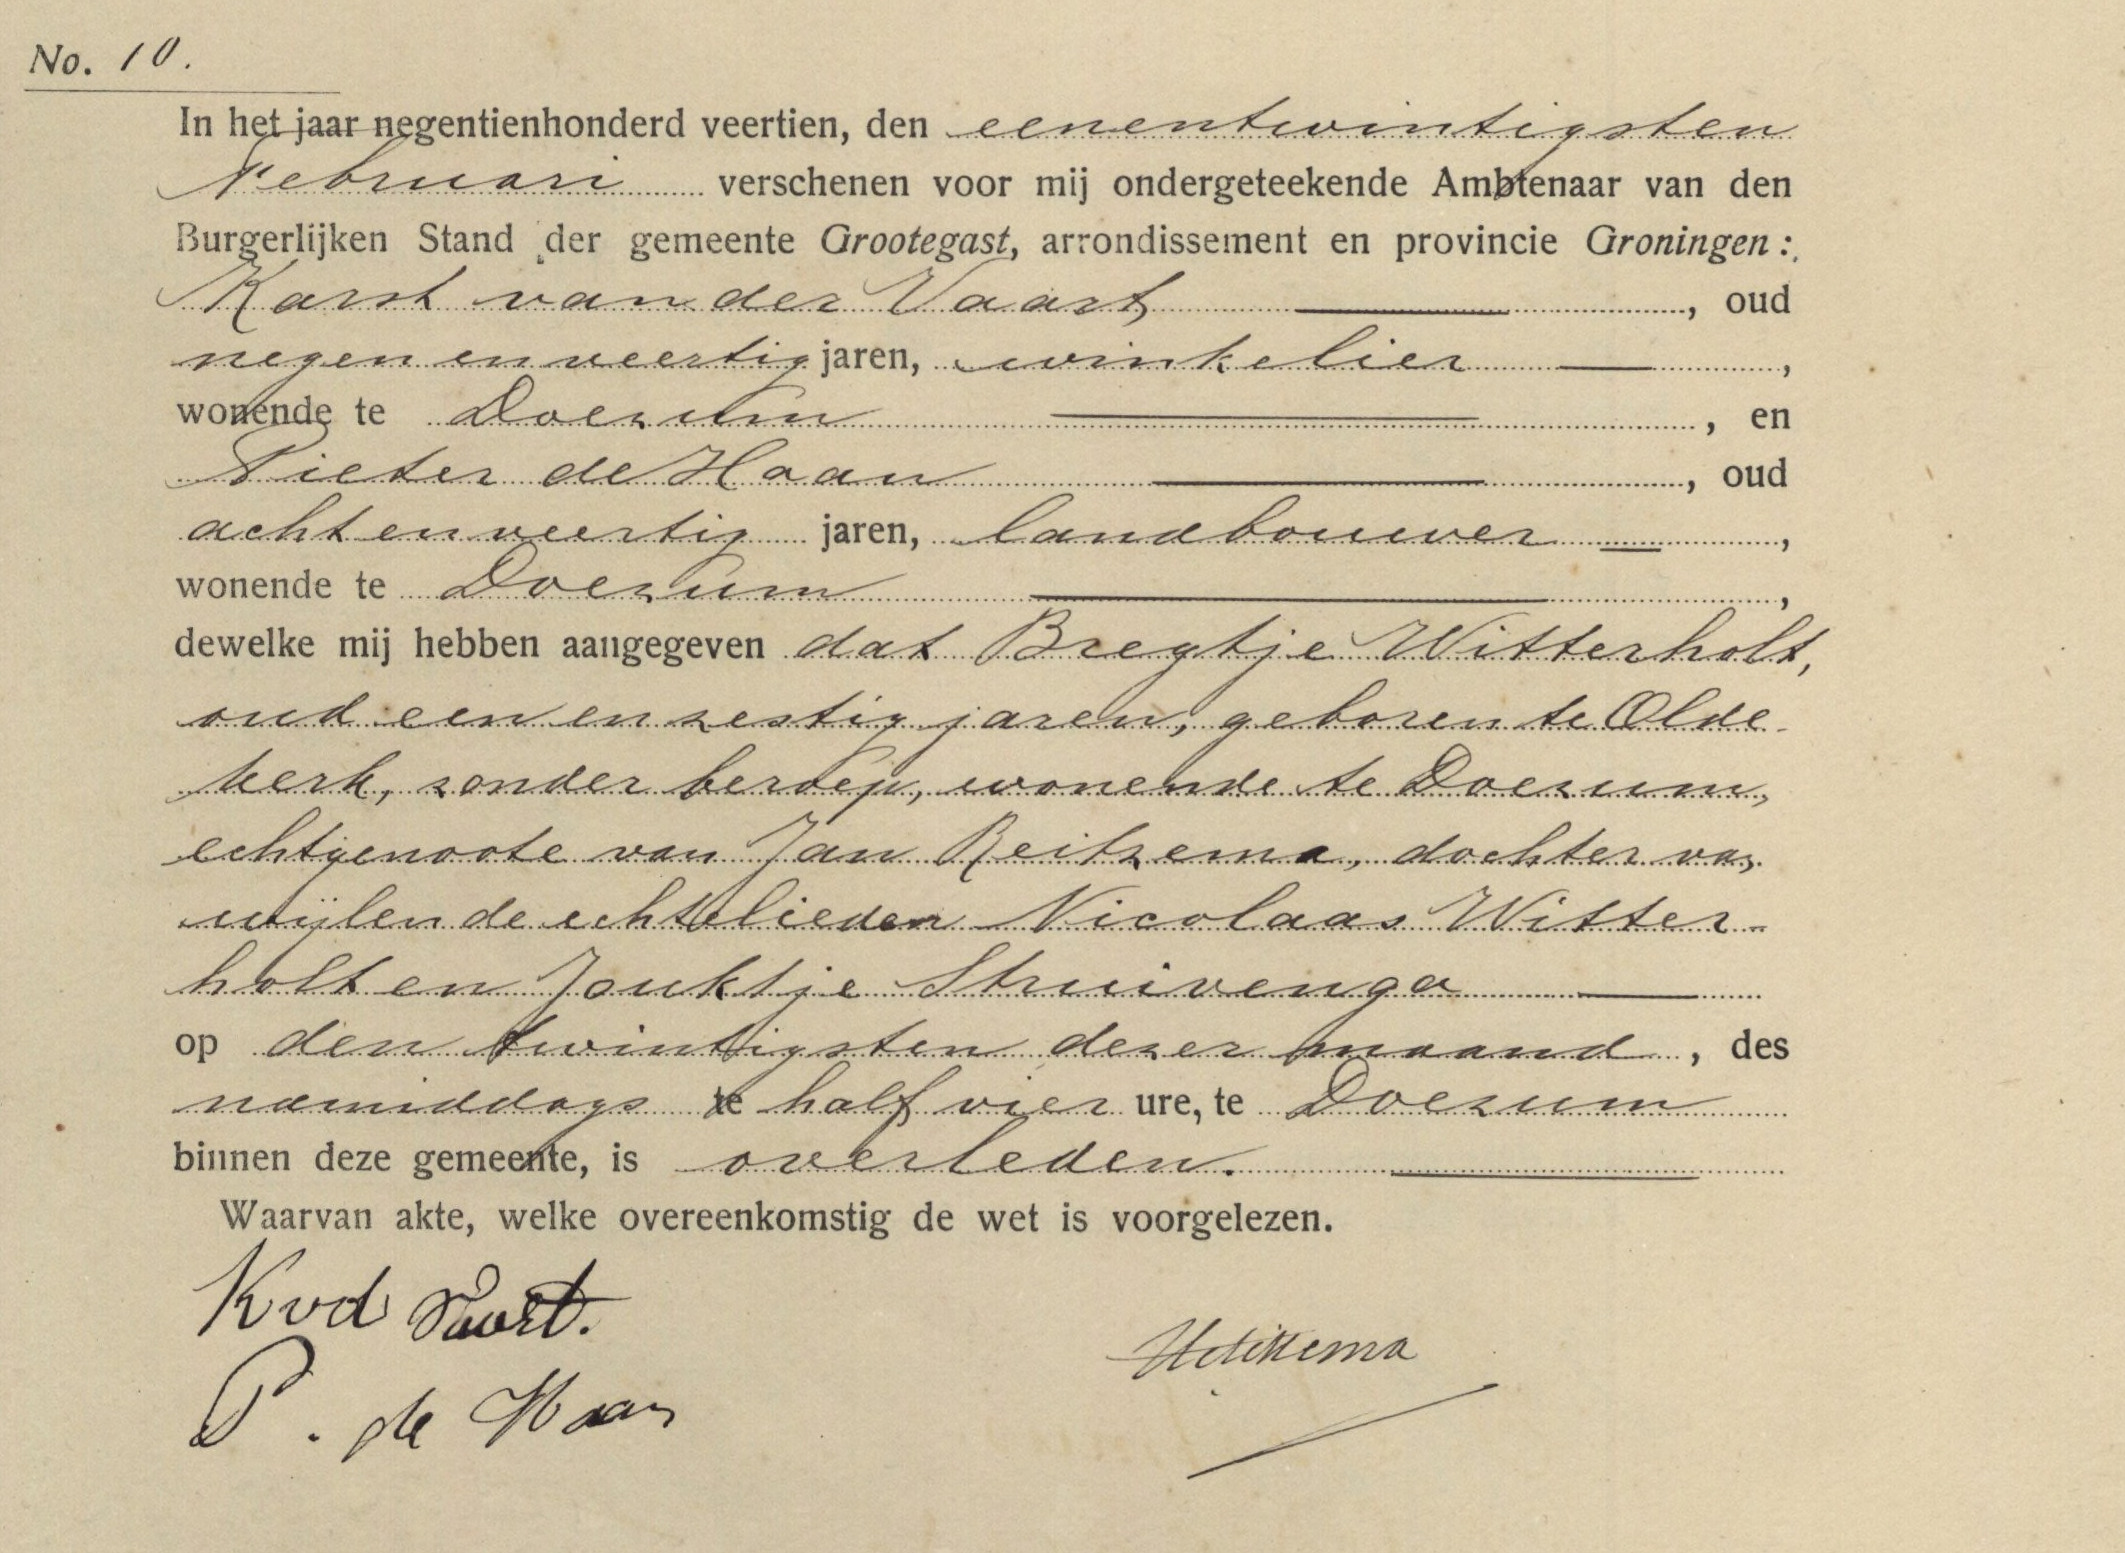 No. 10.
In het jaar negentienhonderd veertien, den eenentwintigsten
Februari verschenen voor mij ondergeteekende Ambtenaar van den
Burgerlijken Stand der gemeente Grootegast, arrondissement en provincie Groningen:
Karst van der Vaart, oud
negen en veertig jaren, winkelier,
wonende te Doezum, en
Pieter de Haan, oud
acht en veertig jaren, landbouwer,
wonende te Doezum,
dewelke mij hebben aangegeven dat Bregtje Witterholt,
oud een en zestig jaren, geboren te Olde-
kerk, zonder beroep, wonende te Doezum,
echtgenoote van Jan Reitzema, dochter van
wijlen de echtelieden Nicolaas Witter-
holt en Jouktje Struivenga
op den twintigsten dezer maand, des
namiddags te half vier ure, te Doezum
binnen deze gemeente, is overleden.
Waarvan akte, welke overeenkomstig de wet is voorgelezen.
K vd Vaart.
P. de Haan